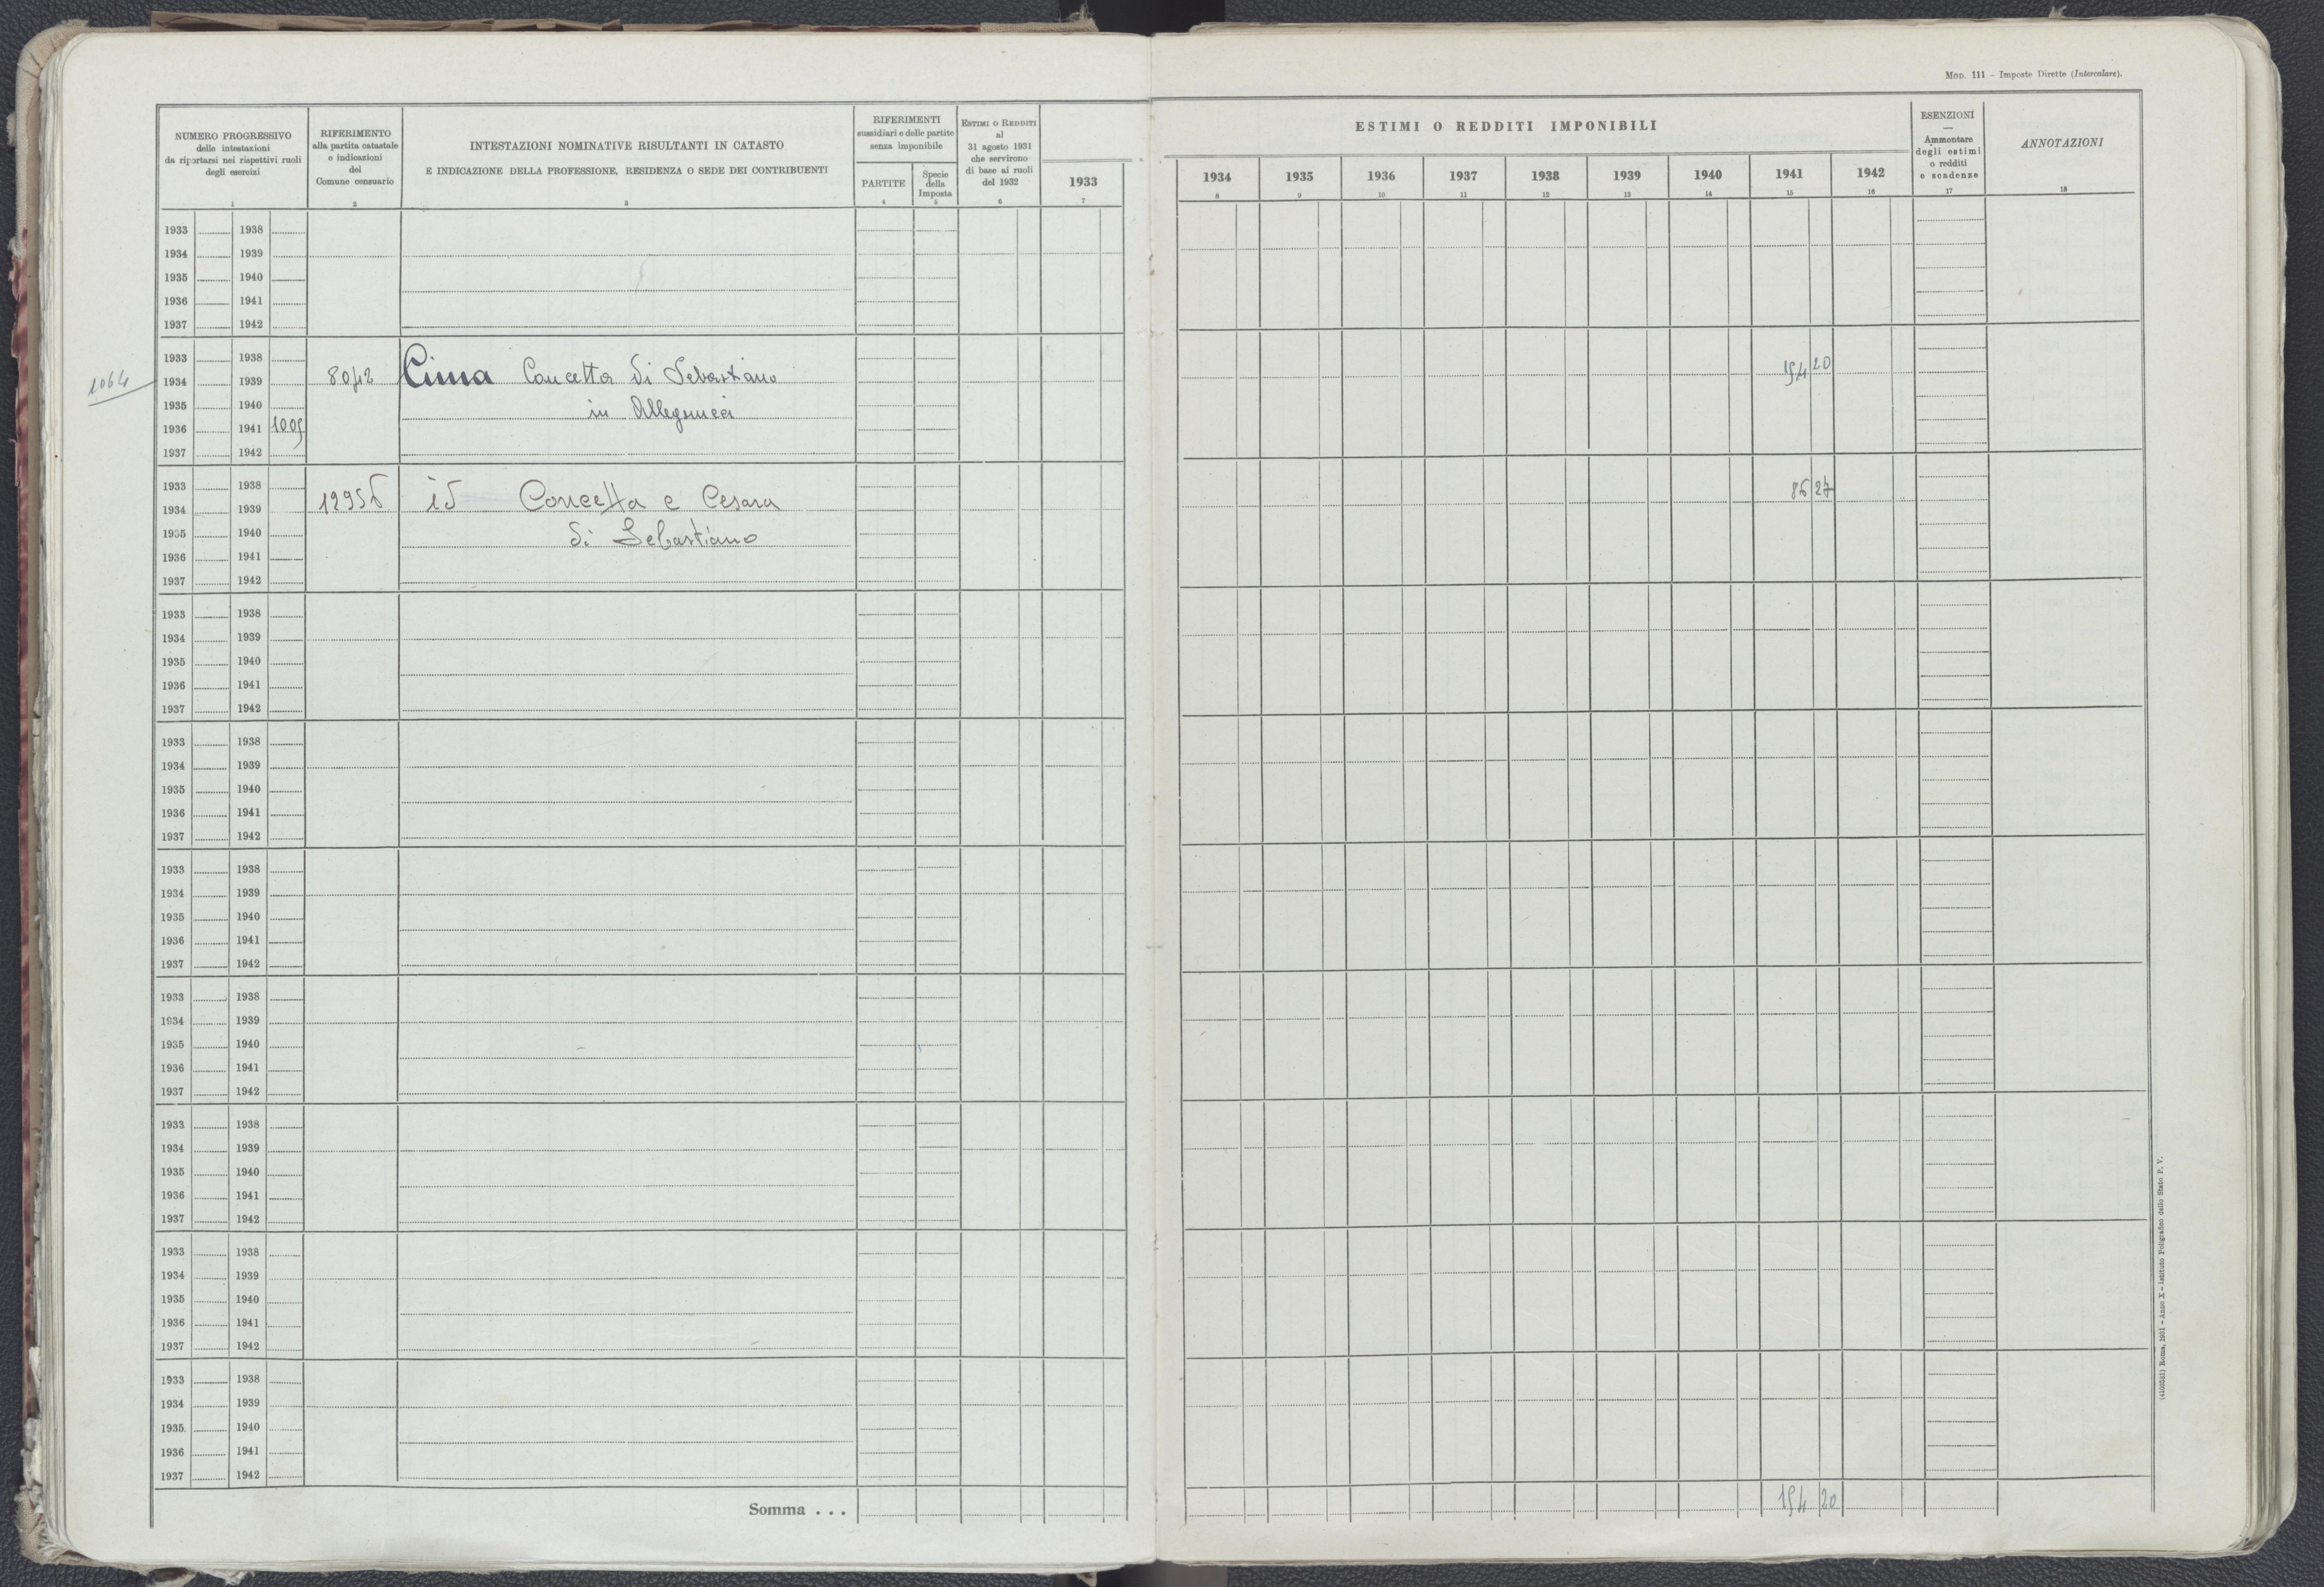 MOD. 111 - Imposte Dirette (Intercalare).
NUMERO PROGRESSIVO
delle intestazioni
da riportarsi nei rispettivi ruoli
degli esercizi
1
RIFERIMENTO
alla partita catastale
e indicazioni
del
Comune censuario
2
INTESTAZIONI NOMINATIVE RISULTANTI IN CATASTO
E INDICAZIONE DELLA PROFESSIONE, RESIDENZA O SEDE DEI CONTRIBUENTI
3
RIFERIMENTI
sussidiari e delle partite
senza imponibile
PARTITE
4
Specie
della
Imposta
5
ESTIMI O REDDITI
al
31 agosto 1931
che servirono
di base ai ruoli
del 1932
6
1933
7
ESTIMI O REDDITI IMPONIBILI
1934 1935 1936 1937 1938 1939 1940 1941 1942
8 9 10 11 12 13 14 15 16
ESENZIONI
—
Ammontare
degli estimi
o redditi
e scadenze
17
ANNOTAZIONI
18
1933 1938
1934 1939
1935 1940
1936 1941
1937 1942
1933 1938
1064 1934 1939 8042 Cima Concetta di Sebastiano 20
1935 1940 in
1936 1941
1937 1942
1933 1938 27
1934 1939 id Concetta e Cesara
1935 1940 di Sebastiano
1936 1941
1937 1942
1933 1938
1934 1939
1935 1940
1936 1941
1937 1942
1933 1938
1934 1939
1935 1940
1936 1941
1937 1942
1933 1938
1934 1939
1935 1940
1936 1941
1937 1942
1933 1938
1934 1939
1935 1940
1936 1941
1937 1942
1933 1938
1934 1939
1935 1940
1936 1941
1937 1942
1933 1938
1934 1939
1935 1940
1936 1941
1937 1942
1933 1938
1934 1939
1935 1940
1936 1941
1937 1942
Somma . . . 20
Roma, 1931 - Anno X - Istituto Poligrafico dello Stato P. V.